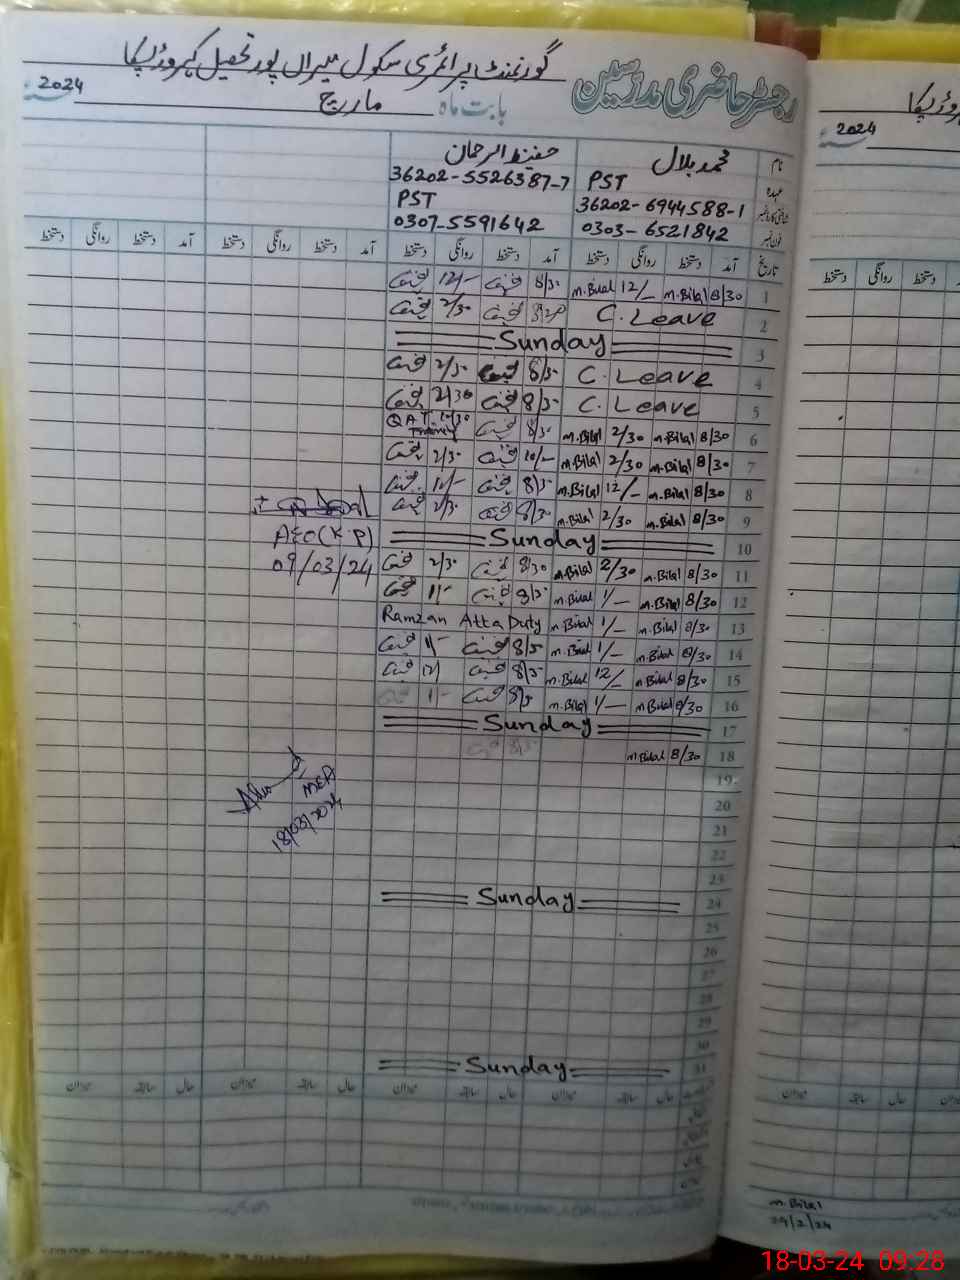 رجسٹر حاضری مدرسین گورنمنٹ پرائمری سکول میراں پور تحصیل کہروڑ پکا
بابت ماہ مارچ سنہ 2024
نام محمد بلال حفیظ الرحمان
عہدہ PST 36202-5526387-7
شناختی کارڈ نمبر 36202-6944588-1 PST
فون نمبر 0303-6521842 0307-5591642
تاریخ آمد دستخط روانگی دستخط آمد دستخط روانگی دستخط آمد دستخط روانگی دستخط آمد دستخط روانگی دستخط
1 8/30 m.Bilal 12/- m.Bilal 8/30 12/-
2 C. Leave 2/30
3 Sunday
4 C. Leave 8/30 2/30
5 C. Leave 8/30 2/30
6 8/30 m.Bilal 2/30 m.Bilal 8/30 QAT
7 8/30 m.Bilal 2/30 m.Bilal 10/- 2/30
8 8/30 m.Bilal 12/- m.Bilal 8/30 12/-
9 8/30 m.Bilal 2/30 m.Bilal 8/30 2/30
10 Sunday
AEO (K.P)
09/03/24
11 8/30 m.Bilal 2/30 m.Bilal 8/30 2/30
12 8/30 m.Bilal 1/- m.Bilal 8/30 1/-
13 8/30 m.Bilal 1/- m.Bilal Ramzan Atta Duty
14 8/30 m.Bilal 1/- m.Bilal 8/30 1/-
15 8/30 m.Bilal 12/- m.Bilal 8/30 12/
16 8/30 m.Bilal 1/- m.Bilal 8/30 1/-
17 Sunday
18 8/30 m.Bilal 8/30
19
MEA
18/03/2024
20
21
22
23
24 Sunday
25
26
27
28
29
30
31 Sunday
حال سابقہ میزان حال سابقہ میزان حال سابقہ میزان حال سابقہ میزان
2024
m.Bilal
29/2/24
18-03-24 09:28